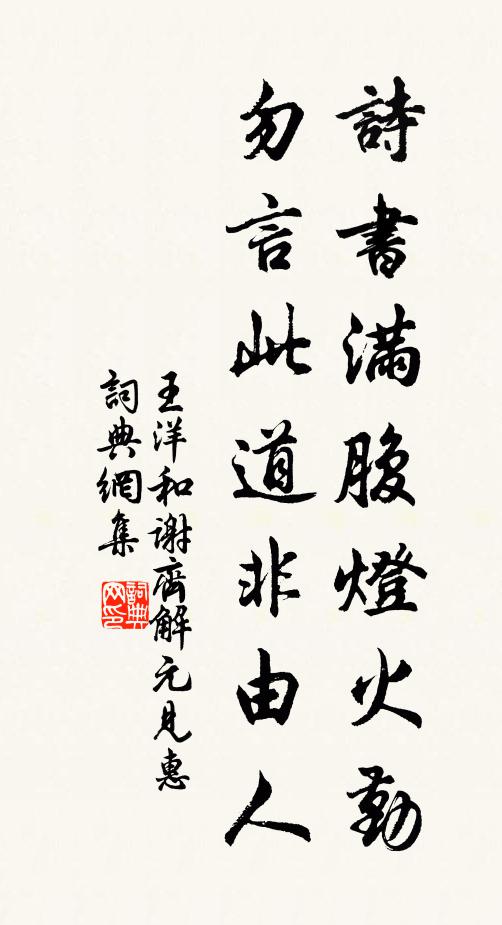 詩書滿腹燈火勤
勿言此道非由人
王洋和謝齊解元見惠
詞典網集
詞典
网印